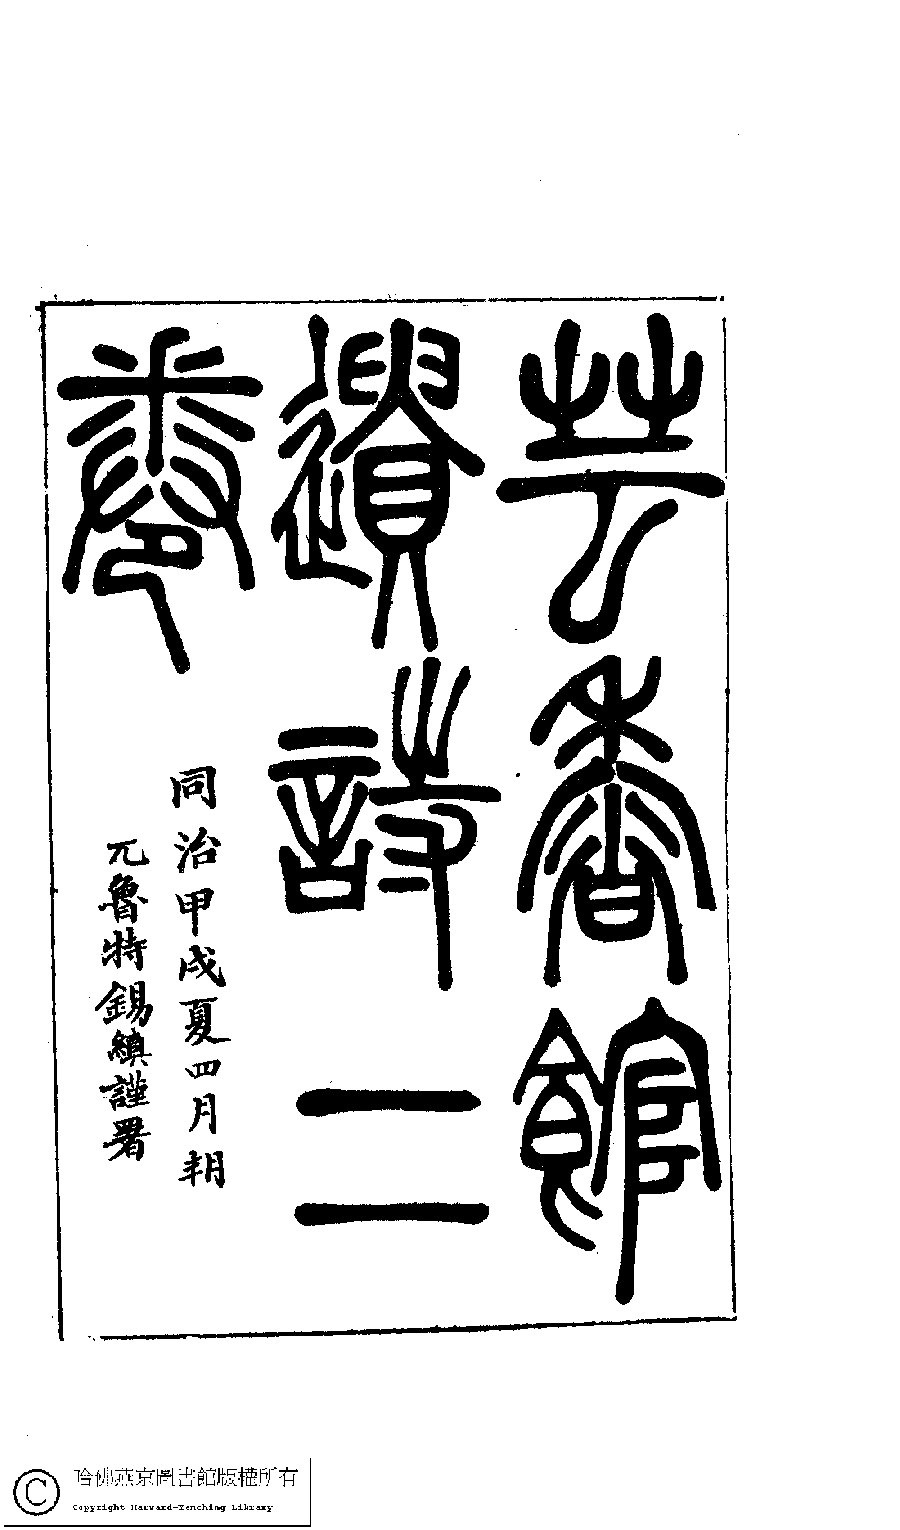 芸香館
遺詩二
卷
同治甲戌夏四月朔
兀魯特錫縝謹署
哈佛燕京圖書館版權所有
Copyright Harvard-Yenching Library